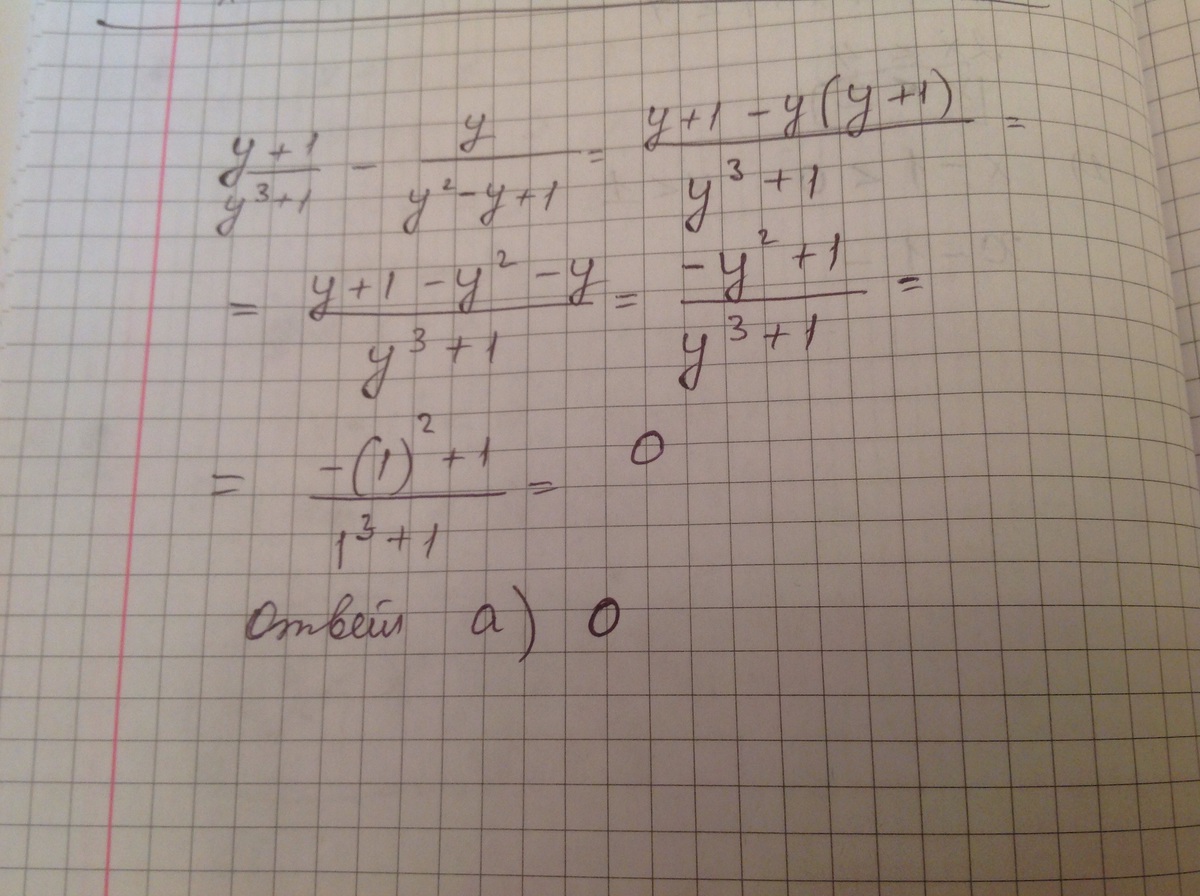 (y+1)/(y³+1) − y/(y²−y+1) = (y+1−y(y+1))/(y³+1) =
= (y+1−y²−y)/(y³+1) = (−y²+1)/(y³+1) =
= (−(1)²+1)/(1³+1) = 0
Ответ а) 0